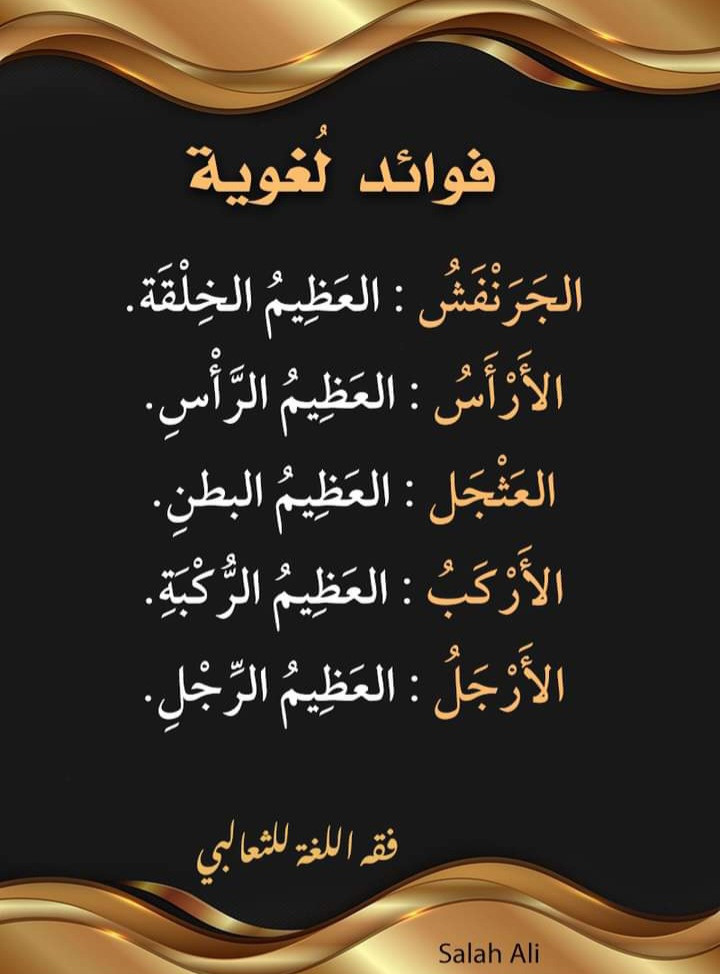 فوائد لُغوية
الجَرَنْفَشُ : العَظِيمُ الخِلْقَة.
الأَرْأَسُ : العَظِيمُ الرَّأْسِ.
العَثْجَل : العَظِيمُ البطنِ.
الأَرْكَبُ : العَظِيمُ الرُّكْبَةِ.
الأَرْجَلُ : العَظِيمُ الرِّجْلِ.
فقه اللغة للثعالبي
Salah Ali